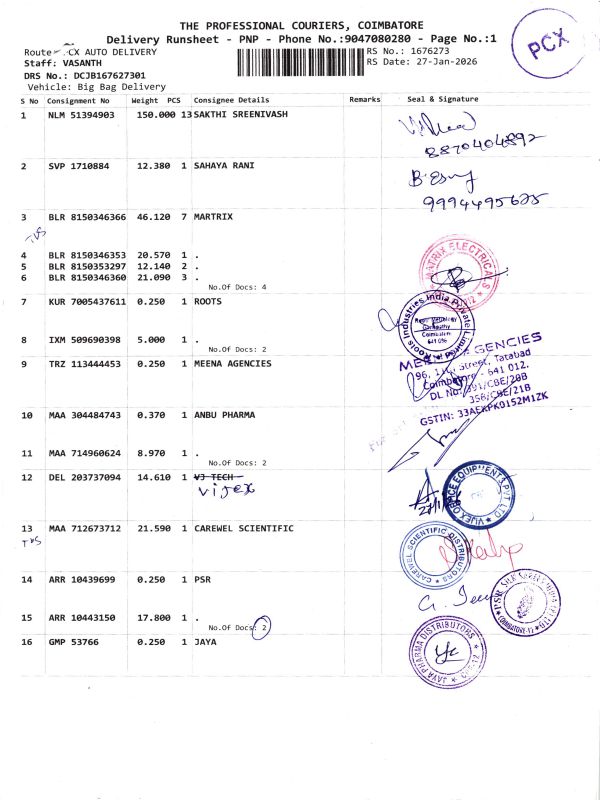 THE PROFESSIONAL COURIERS, COIMBATORE
Delivery Runsheet - PNP - Phone No.:9047080280 - Page No.:1
PCX
Route CX AUTO DELIVERY
RS No.: 1676273
Staff: VASANTH
RS Date: 27-Jan-2026
DRS No.: DCJB167627301
Vehicle: Big Bag Delivery
S No Consignment No Weight PCS Consignee Details Remarks Seal & Signature
1 NLM 51394903 150.000 13 SAKTHI SREENIVASH
8870404892
2 SVP 1710884 12.380 1 SAHAYA RANI
9994495625
3 BLR 8150346366 46.120 7 MARTRIX
TVS
4 BLR 8150346353 20.570 1 .
5 BLR 8150353297 12.140 2 .
6 BLR 8150346360 21.090 3 .
No.Of Docs: 4
MATRIX ELECTRICALS
7 KUR 7005437611 0.250 1 ROOTS
Roots Industries India Private Limited
Coimbatore
641 016
8 IXM 509690398 5.000 1 .
No.Of Docs: 2
9 TRZ 113444453 0.250 1 MEENA AGENCIES
GENCIES
Street, Tatabad
Coimbatore - 641 012.
DL No: 391/CBE/20B
358/CBE/21B
GSTIN: 33AEKPK0152M1ZK
10 MAA 304484743 0.370 1 ANBU PHARMA
11 MAA 714960624 8.970 1 .
No.Of Docs: 2
12 DEL 203737094 14.610 1 VJ TECH
vijex
VIJEX OFFICE EQUIPMENTS PVT LTD
13 MAA 712673712 21.590 1 CAREWEL SCIENTIFIC
TVS
CAREWEL SCIENTIFIC DISTRIBUTORS
14 ARR 10439699 0.250 1 PSR
15 ARR 10443150 17.800 1 .
No.Of Docs: 2
16 GMP 53766 0.250 1 JAYA
JAYA PHARMA DISTRIBUTORS